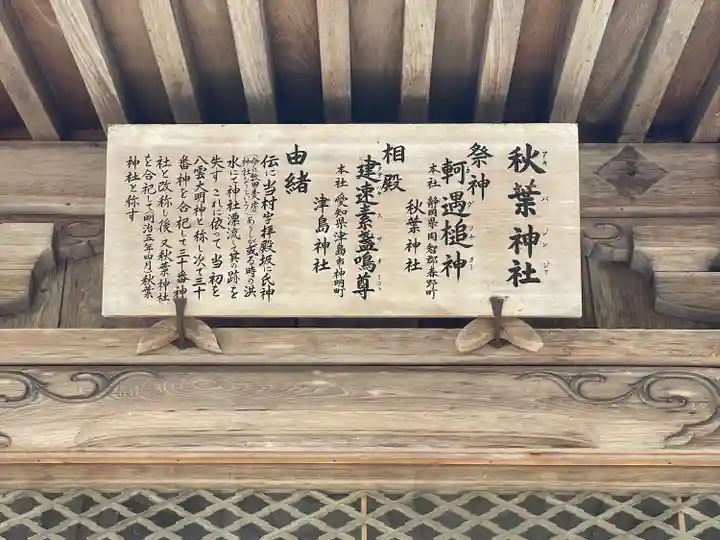 秋葉神社
アキバジンジャ
祭神
軻遇槌神
本社 静岡県周智郡春野町
秋葉神社
相殿
建速素盞嗚尊
本社 愛知県津島市神明町
津島神社
由緒
伝に当村宮拝殿坂に氏神
神社 ありしが或る時の洪
水にて神社漂流して其の跡を
失す これに依って当初を
八雲大明神と称し次て三十
番神を合祀して三十番神
社と改称し後又秋葉神社
を合祀して明治五年四月秋葉
神社と称す